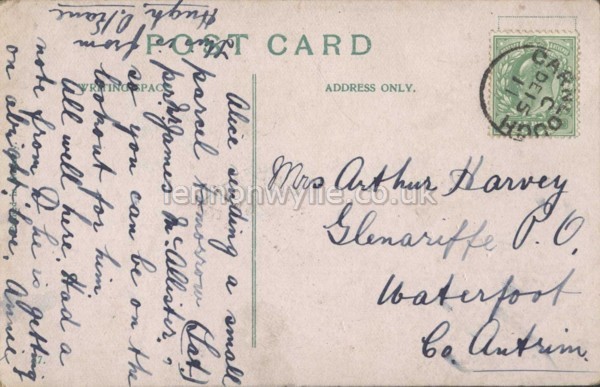 POST CARD
WRITING SPACE
ADDRESS ONLY.
This is from
Hugh O'Kane
Alice sending a small
parcel tomorrow (Sat.)
per James McAllister,
so you can be on the
lookout for him.
All well here. Had a
note from D he is getting
on alright. love. Annie
CARNLOUGH
DE 15
11
Mrs Arthur Harvey
Glenariffe P.O.
Waterfoot
Co. Antrim.
lennonwylie.co.uk